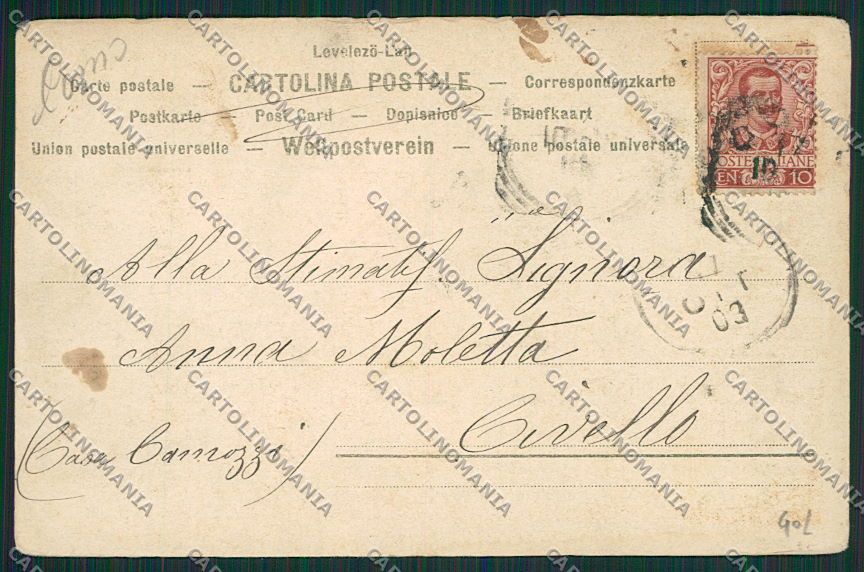 Levelező-Lap
Carte postale — CARTOLINA POSTALE — Correspondenzkarte
Postkarte — Post Card — Dopisnice — Briefkaart
Union postale universelle — Weltpostverein — Unione postale universale
POSTE ITALIANE
CEN 10
10
1 10
03
Alla Stimatiss. Signora
Anna Moletta
Civello
(Casa Camozzi)
40L
CARTOLINOMANIA